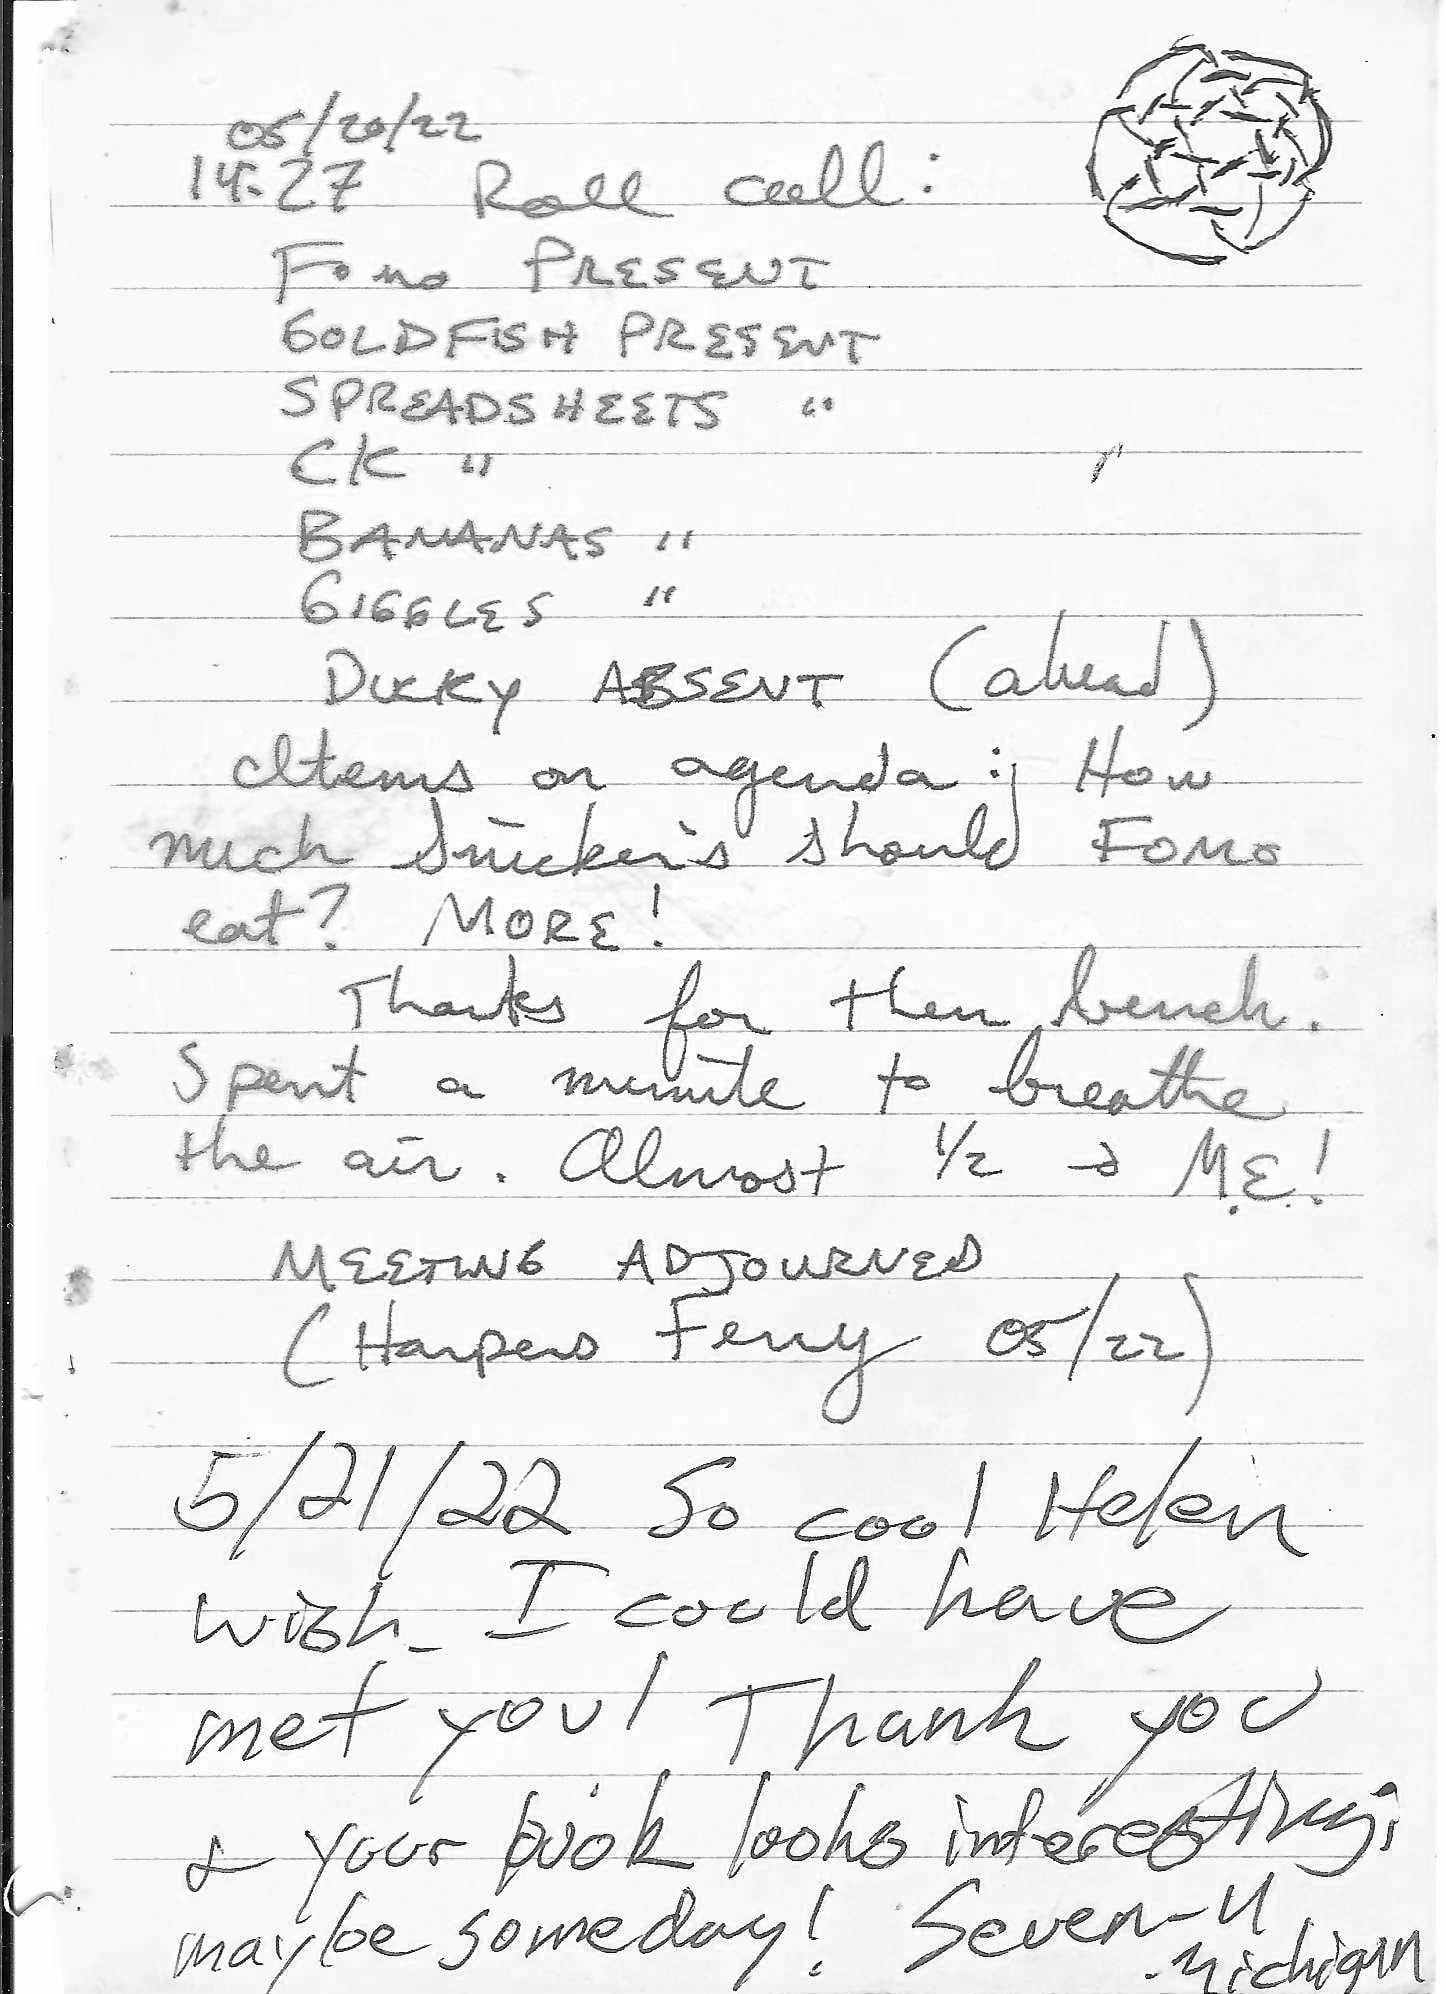 05/20/22
14:27 Roll call:
Fomo PRESENT
GOLDFISH PRESENT
SPREADSHEETS "
CK " "
BANANAS "
GIGGLES "
DUCKY ABSENT (ahead)
Items on agenda: How
much Snickers should FOMO
eat? MORE!
Thanks for then bench.
Spent a minute to breathe
the air. Almost 1/2 → M.E.!
MEETING ADJOURNED
(Harpers Ferry 05/22)
5/21/22 So cool Helen
wish I could have
met you! Thank you
& your book looks interesting,
maybe someday! Seven-11
Michigan